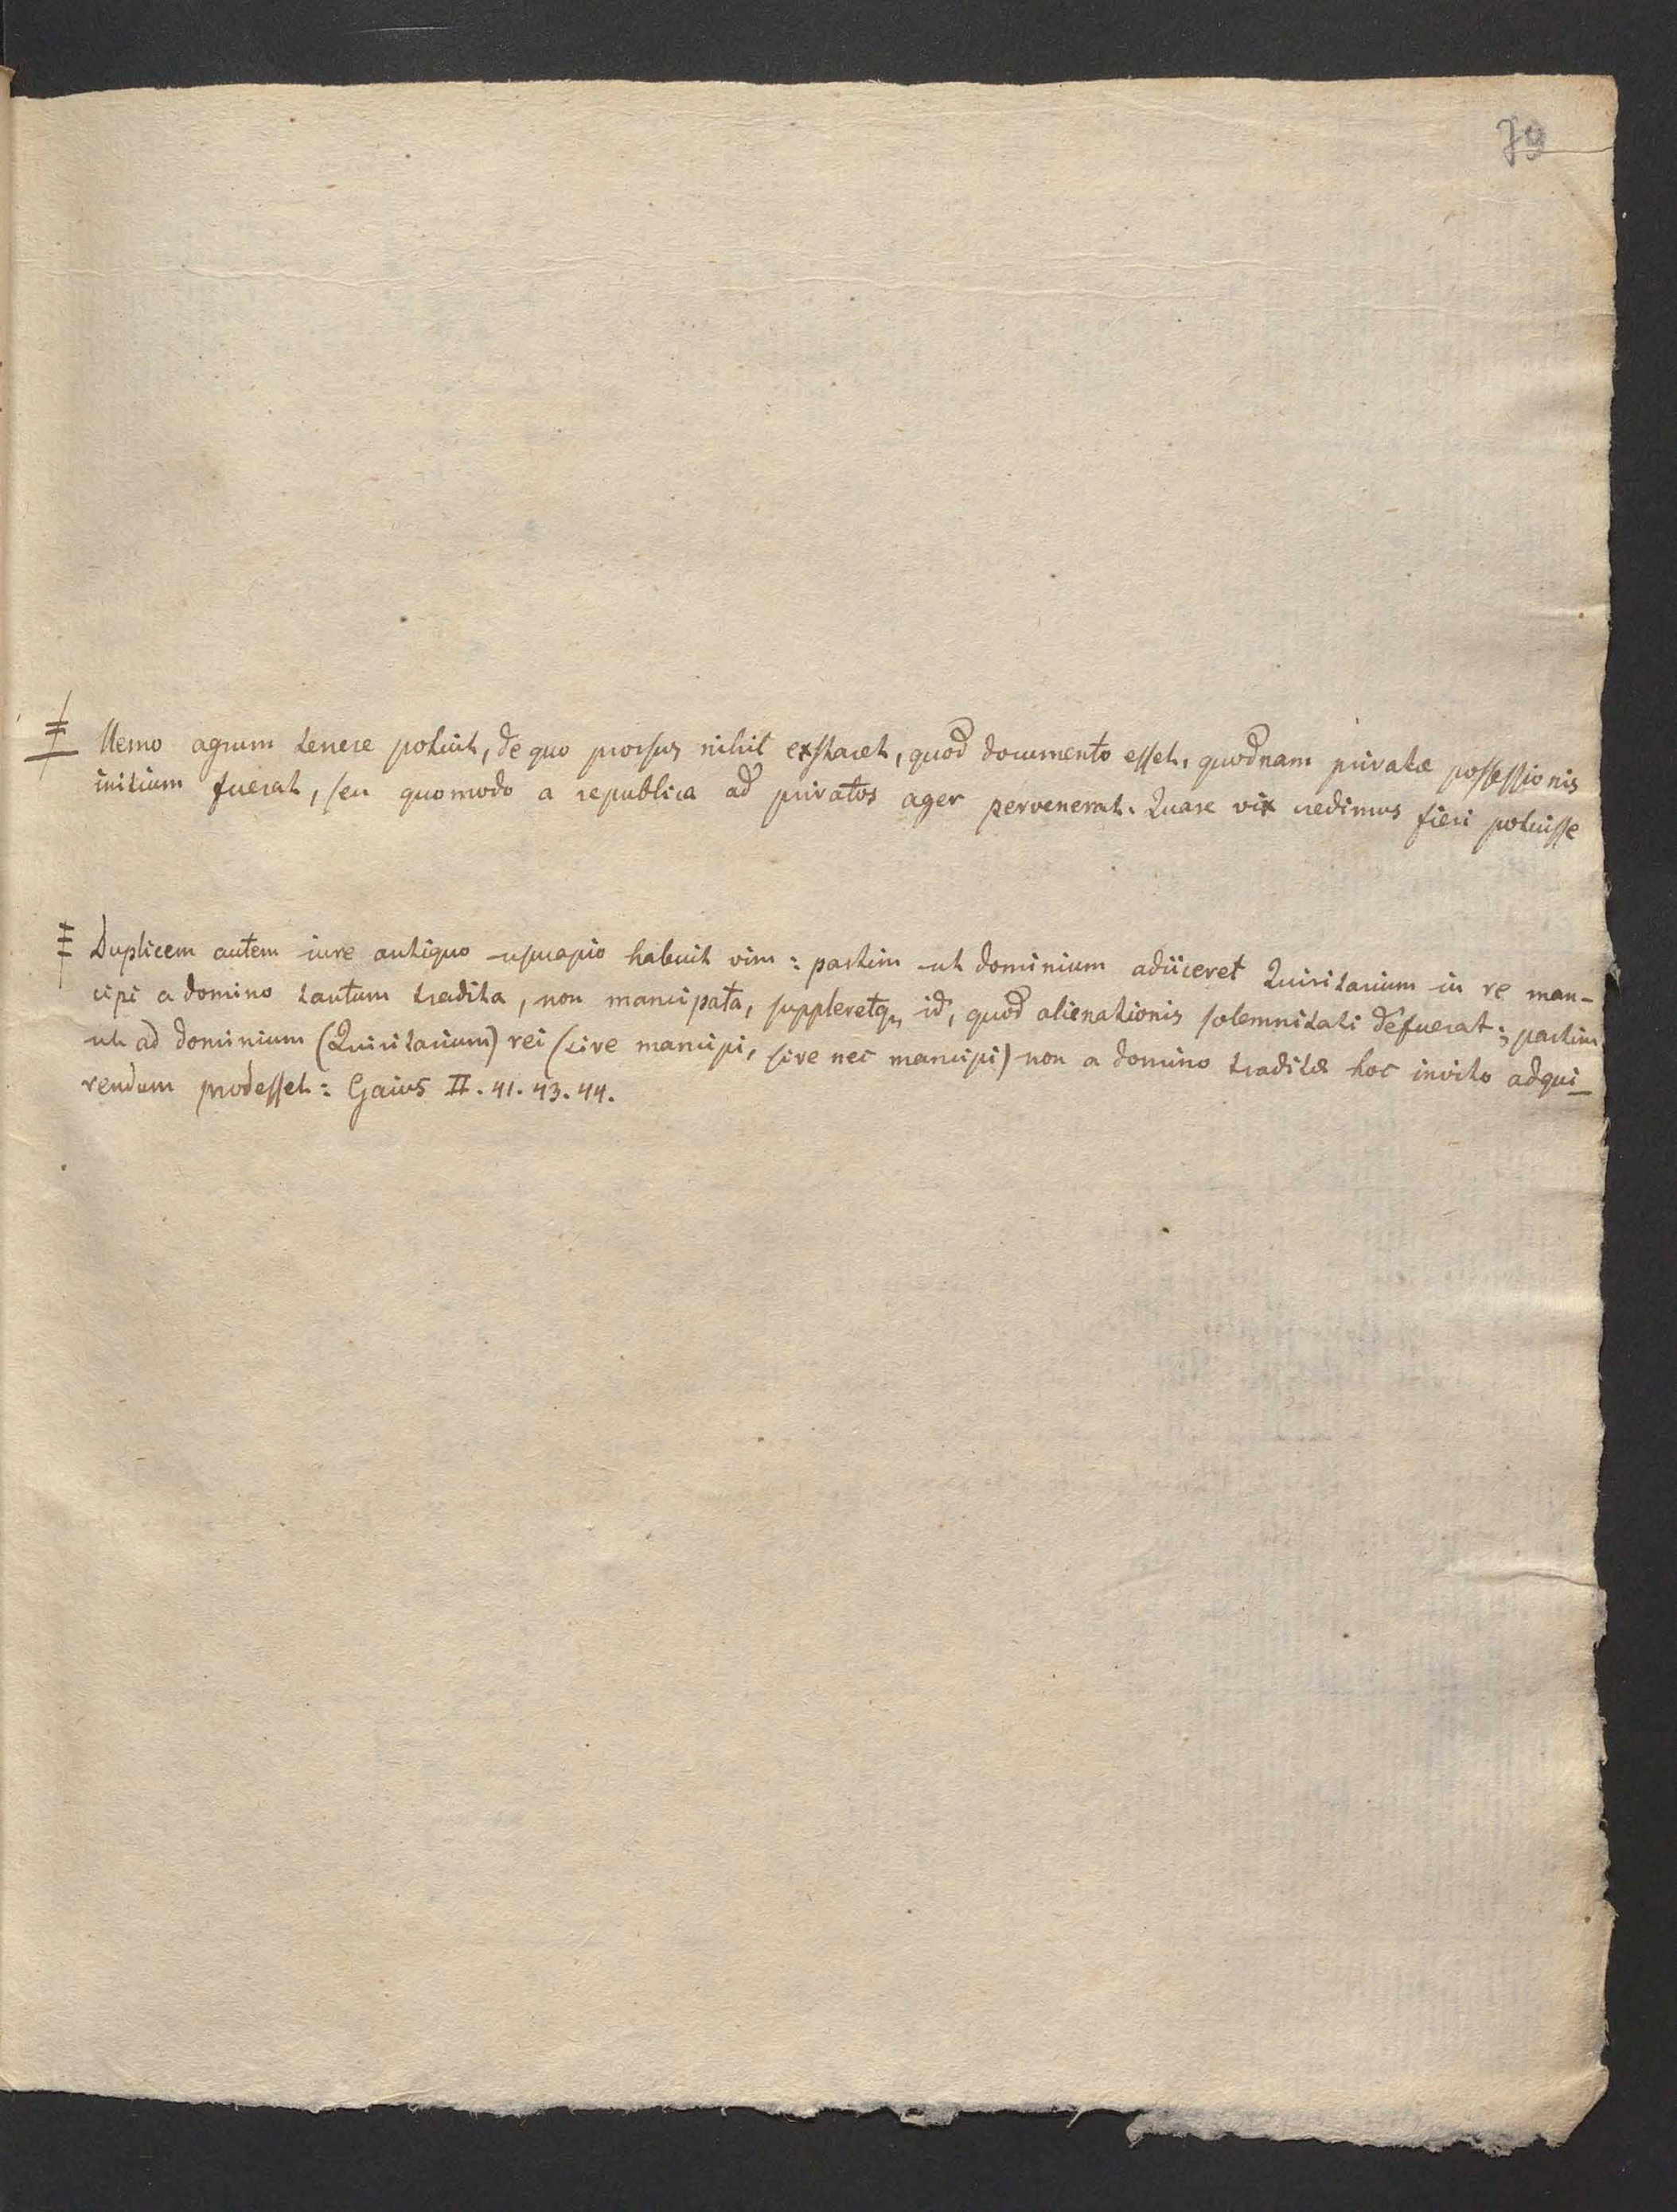 79
Nemo agrum tenere potuit, de quo prorsus nihil exstaret, quod documento esset, quodnam privatæ possessionis
initium fuerat, seu quomodo a republica ad privatos ager pervenerat. Quare vix credimus fieri potuisse
Duplicem autem iure antiquo usucapio habuit vim: partim ut dominium adiiceret Quiritarium in re man-
cipi a domino tantum tradita, non mancipata, suppleretq, id, quod alienationis solemnitati defuerat; partim
ut ad dominium (Quiritarium) rei (sive mancipi, sive nec mancipi) non a domino traditæ hoc invito adqui-
rendum prodesset: Gaius II. 41. 43. 44.